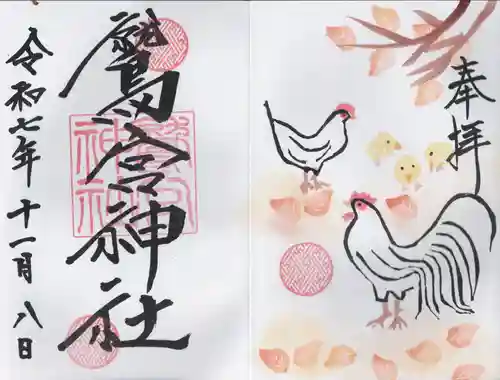 奉拝
鷲宮神社
令和七年十一月八日